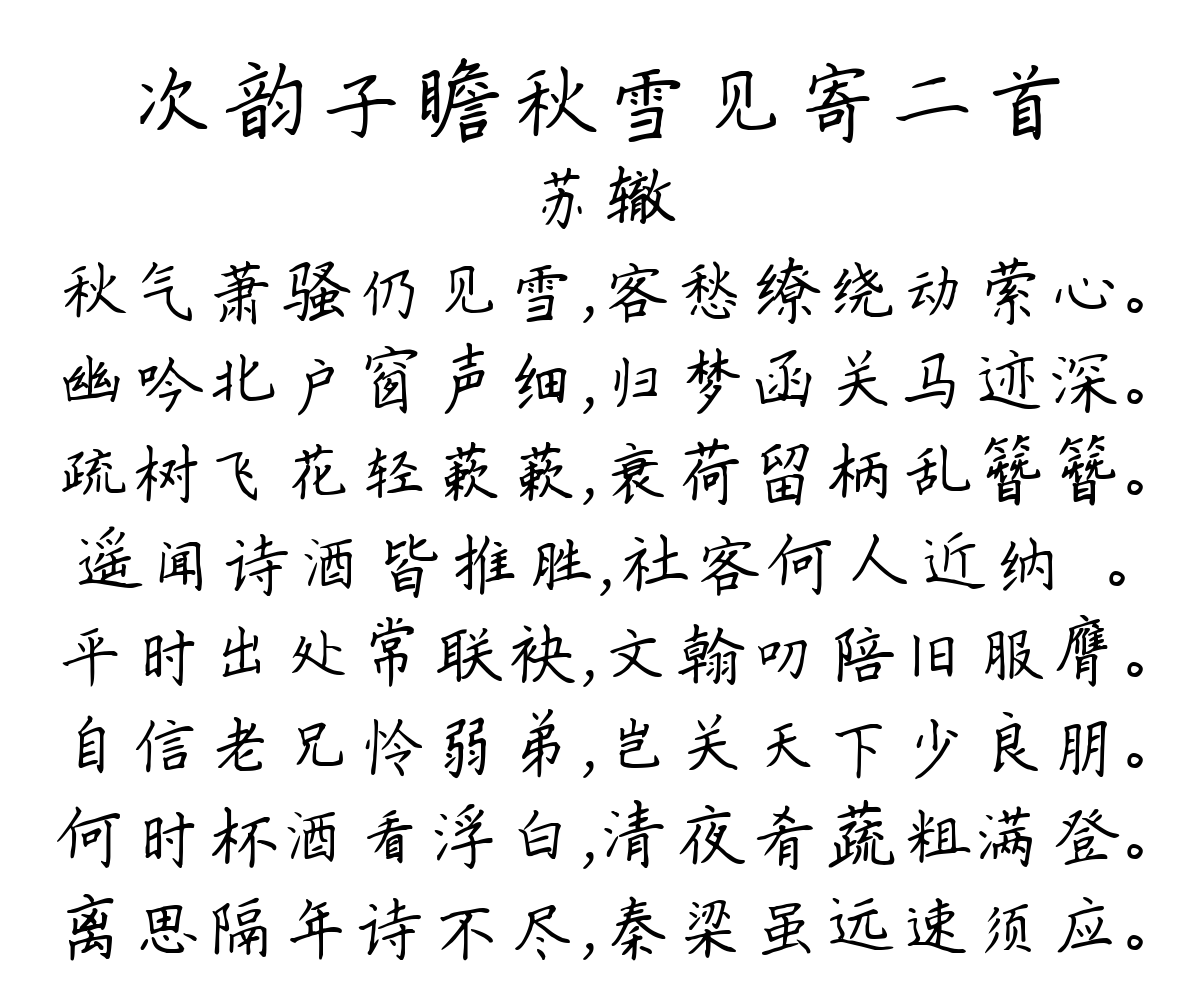 次韵子瞻秋雪见寄二首
苏辙
秋气萧骚仍见雪,客愁缭绕动萦心。
幽吟北户窗声细,归梦函关马迹深。
疏树飞花轻蔌蔌,衰荷留柄乱簪簪。
遥闻诗酒皆推胜,社客何人近纳 。
平时出处常联袂,文翰叨陪旧服膺。
自信老兄怜弱弟,岂关天下少良朋。
何时杯酒看浮白,清夜肴蔬粗满登。
离思隔年诗不尽,秦梁虽远速须应。